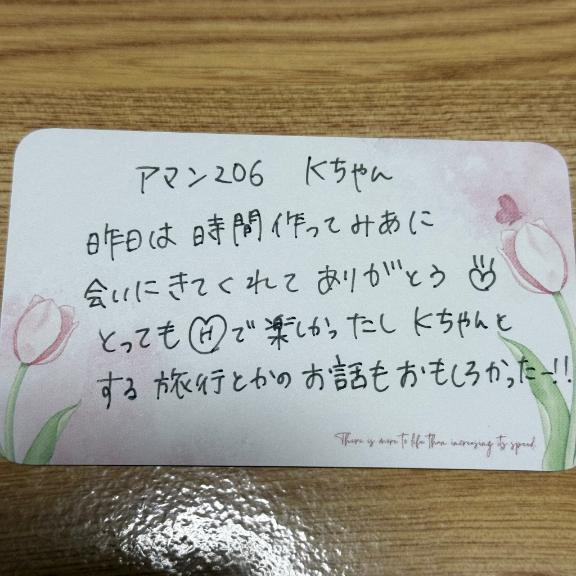 アマン206 Kちゃん
昨日は 時間作ってみあに
会いにきてくれて ありがとう
とっても Hで楽しかったし Kちゃんと
する 旅行とかの お話も おもしろかったー!!
There is more to life than increasing its speed.